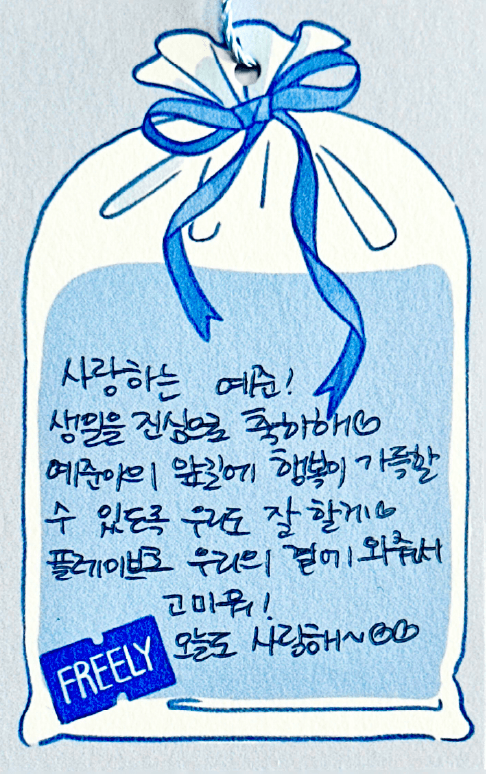 사랑하는 예준!
생일을 진심으로 축하해♡
예준이의 앞길에 행복이 가득할
수 있도록 우리도 잘 할게♡
플레이브로 우리의 곁에 와줘서
고마워!
오늘도 사랑해~♡♡
FREELY